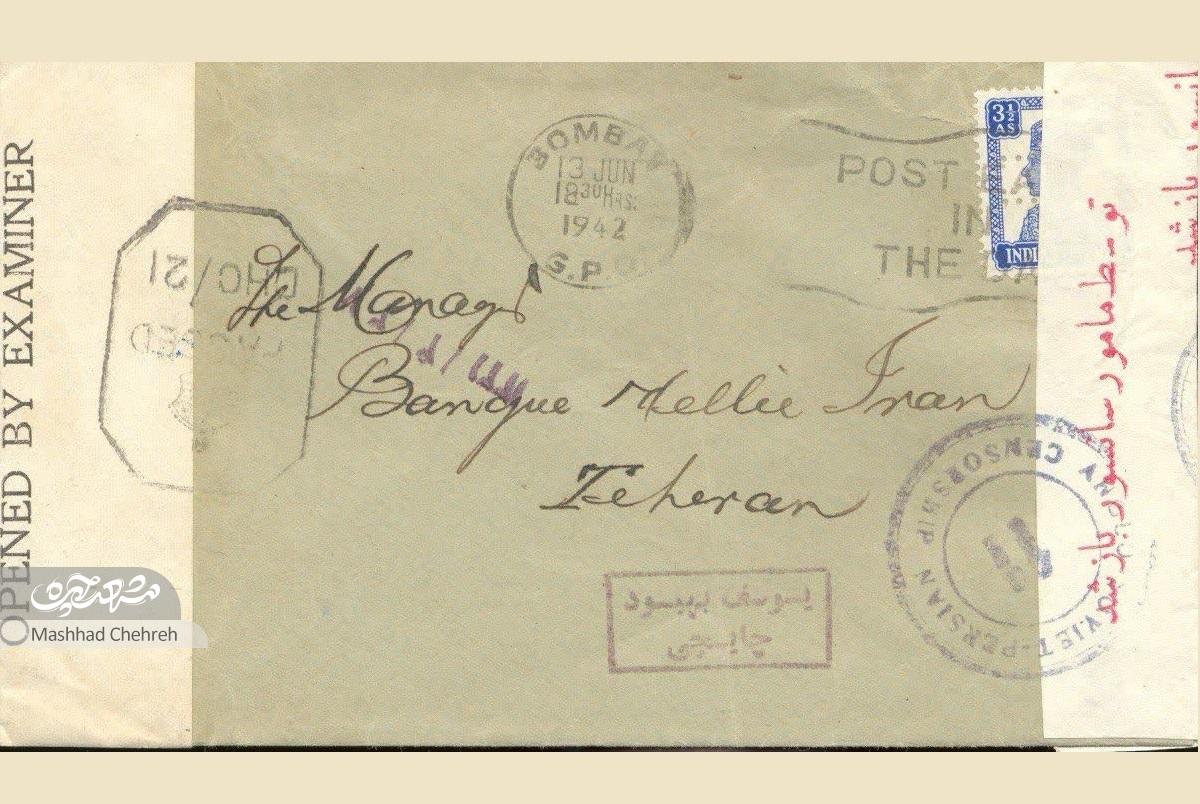 OPENED BY EXAMINER
BOMBAY
13 JUN
18 30 HRS.
1942
G.P.O.
POST
IN
THE
3½
AS
INDI
DHC/21
The Manager
Banque Mellie Iran
Teheran
یوسف بهبود
چایچی
VIET-PERSIAN CENSORSHIP
توسط مامور سانسور باز شد
مشهد چهره
Mashhad Chehreh